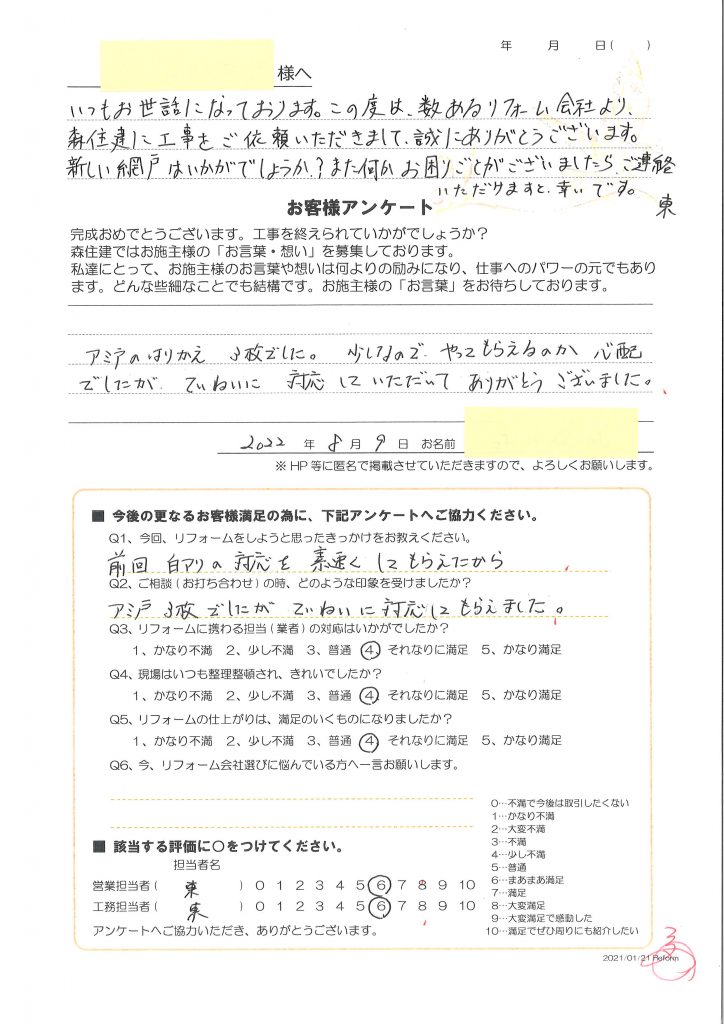 年 月 日( )
様へ
いつもお世話になっております。この度は、数あるリフォーム会社より、
森住建に工事をご依頼いただきまして、誠にありがとうございます。
新しい網戸はいかがでしょうか?また何かお困りごとがございましたら、ご連絡
いただけますと、幸いです。
東
お客様アンケート
完成おめでとうございます。工事を終えられていかがでしょうか?
森住建ではお施主様の「お言葉・想い」を募集しております。
私達にとって、お施主様のお言葉や想いは何よりの励みになり、仕事へのパワーの元でもあり
ます。どんな些細なことでも結構です。お施主様の「お言葉」をお待ちしております。
アミ戸のはりかえ 3枚でした。 少しなので、やってもらえるのか 心配
でしたが、ていねいに 対応していただいて ありがとうございました。
2022 年 8 月 9 日 お名前
※HP等に匿名で掲載させていただきますので、よろしくお願いします。
■ 今後の更なるお客様満足の為に、下記アンケートへご協力ください。
Q1、今回、リフォームをしようと思ったきっかけをお教えください。
前回 白アリの対応を 素速く してもらえたから
Q2、ご相談(お打ち合わせ)の時、どのような印象を受けましたか?
アミ戸 3枚でしたが ていねいに対応してもらえました。
Q3、リフォームに携わる担当(業者)の対応はいかがでしたか?
1、かなり不満 2、少し不満 3、普通 4 それなりに満足 5、かなり満足
Q4、現場はいつも整理整頓され、きれいでしたか?
1、かなり不満 2、少し不満 3、普通 4 それなりに満足 5、かなり満足
Q5、リフォームの仕上がりは、満足のいくものになりましたか?
1、かなり不満 2、少し不満 3、普通 4 それなりに満足 5、かなり満足
Q6、今、リフォーム会社選びに悩んでいる方へ一言お願いします。
■ 該当する評価に〇をつけてください。
担当者名
営業担当者( 東 ) 0 1 2 3 4 5 6 7 8 9 10
工務担当者( 東 ) 0 1 2 3 4 5 6 7 8 9 10
アンケートへご協力いただき、ありがとうございます。
0…不満で今後は取引したくない
1…かなり不満
2…大変不満
3…不満
4…少し不満
5…普通
6…まあまあ満足
7…満足
8…大変満足
9…大変満足で感動した
10…満足でぜひ周りにも紹介したい
2021/01/21 Reform